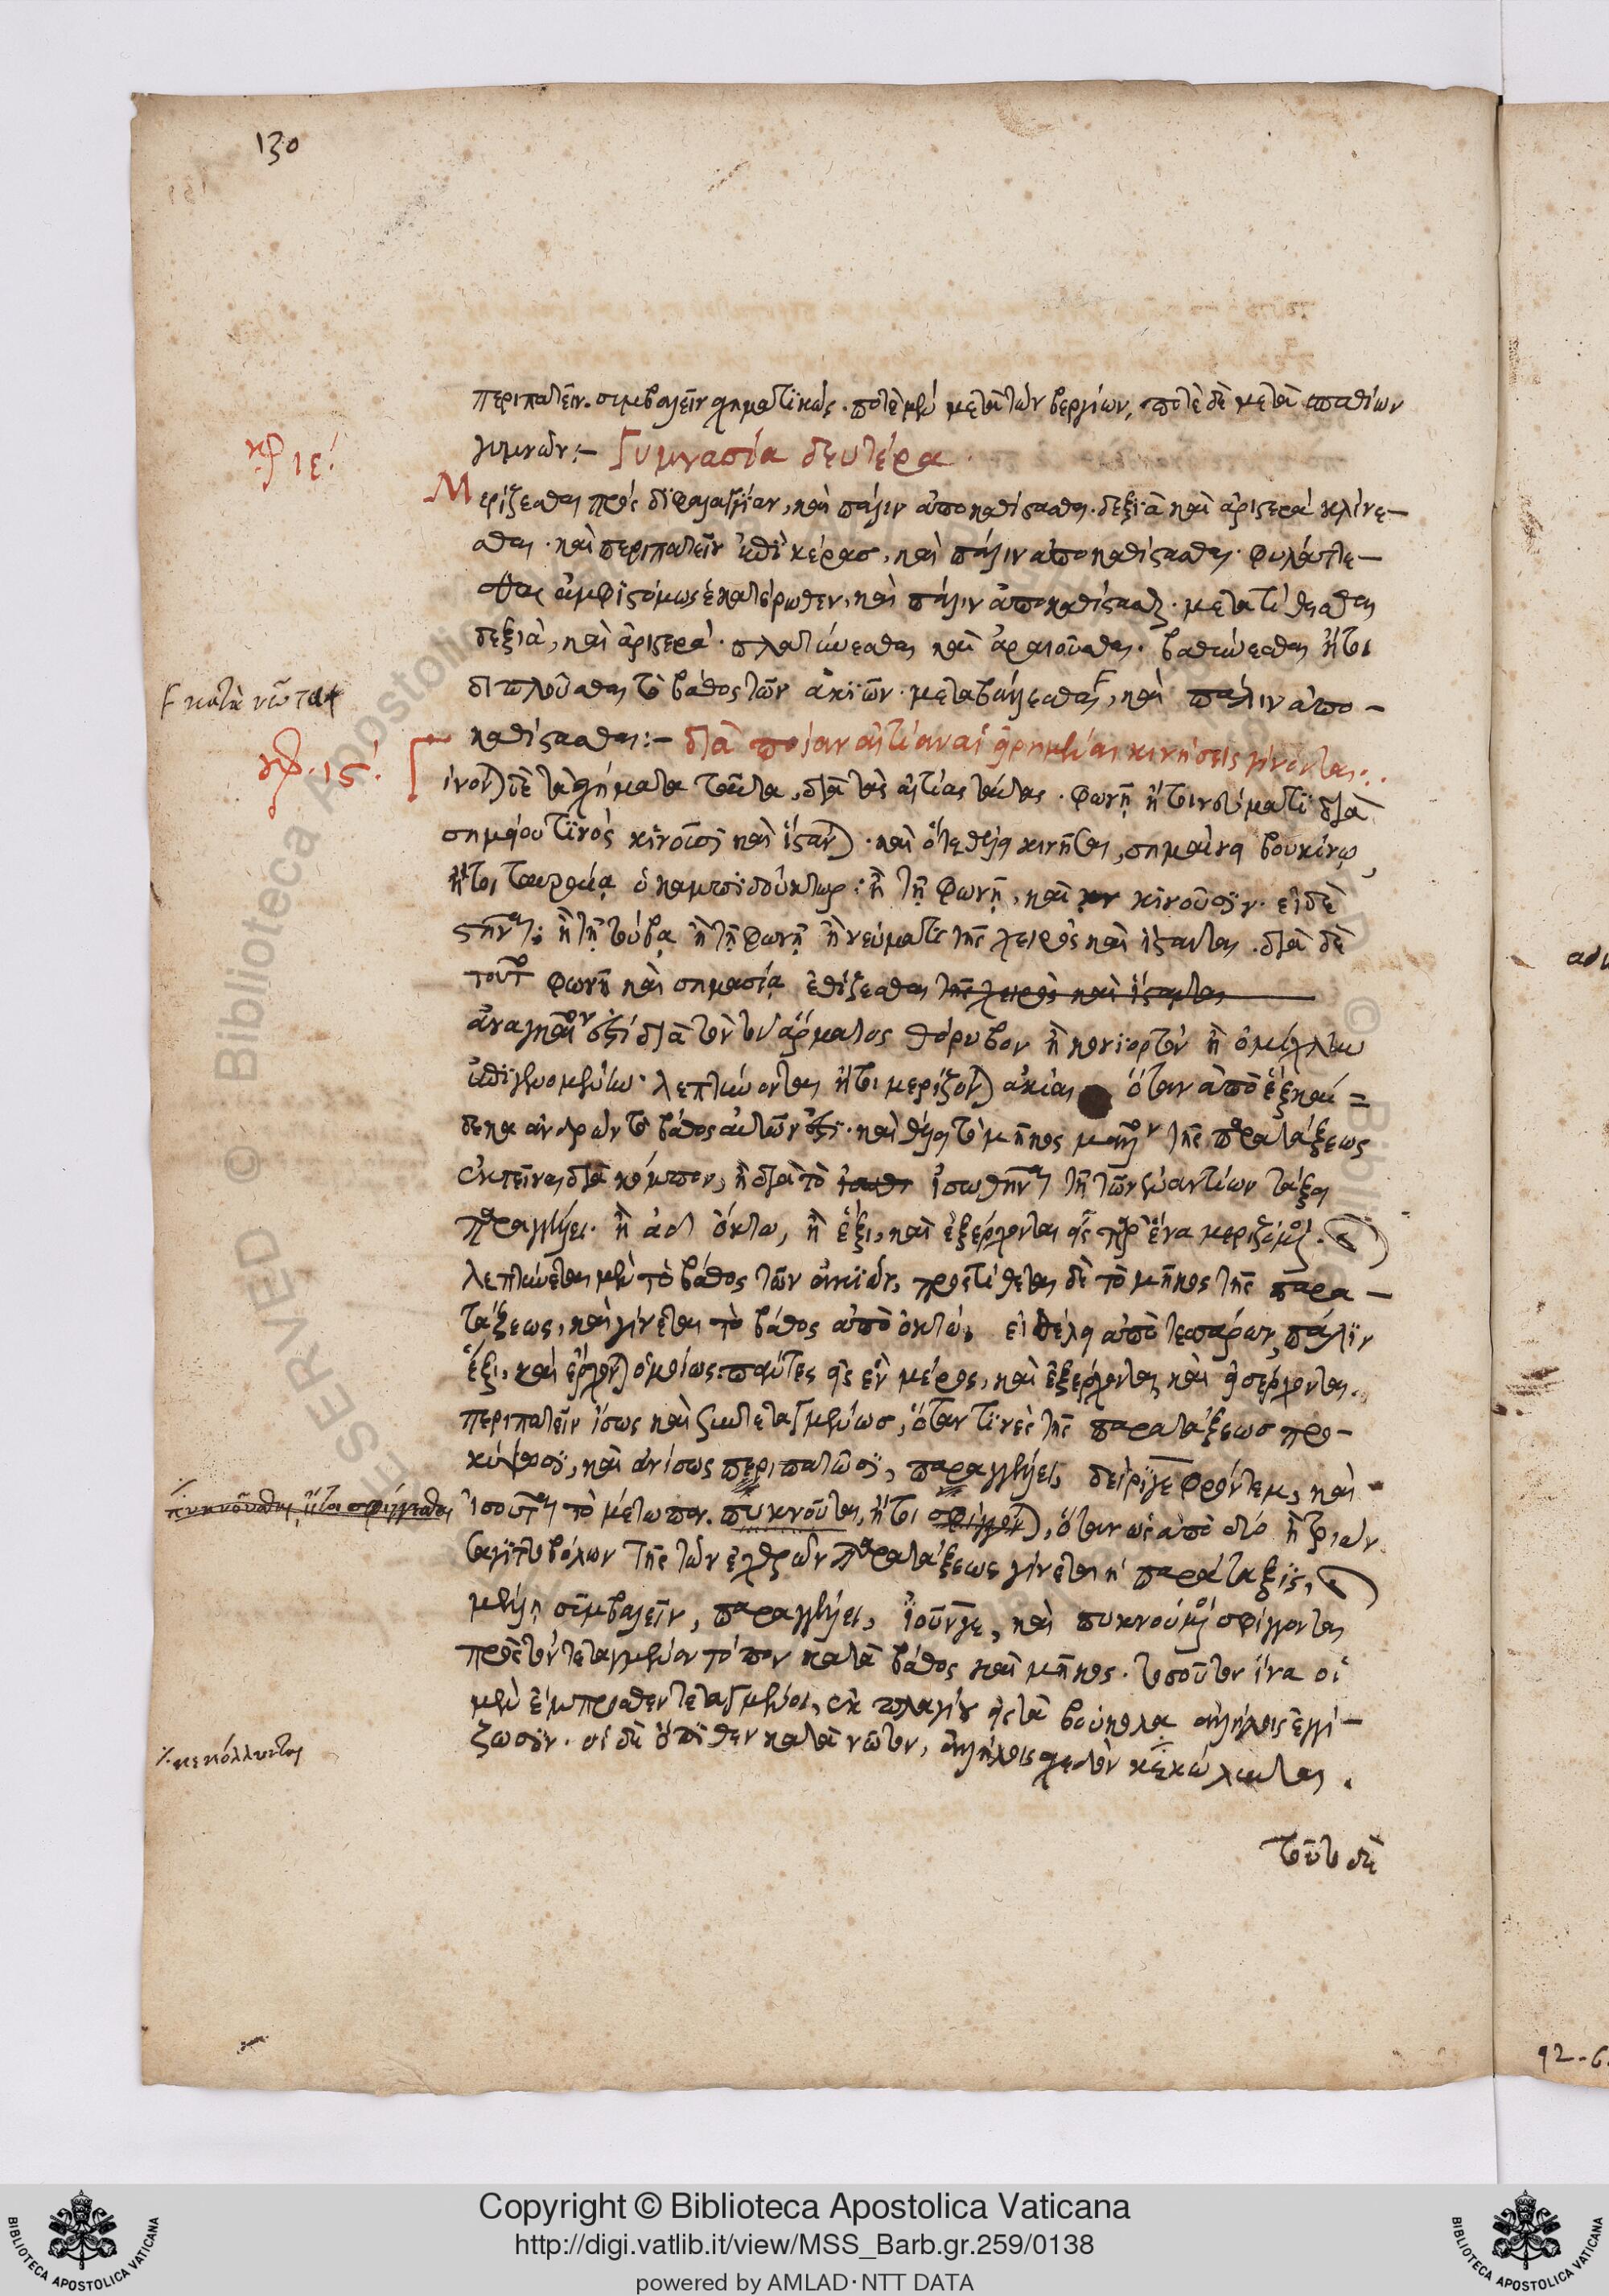 130
περιπατεῖν. συμβαλεῖν σχηματικῶς. ποτὲ μὲν μετὰ τῶν βεργίων, ποτὲ δὲ μετὰ σπαθίων
γυμνῶν:– Γυμνασία δευτέρα.
κεφ ιε΄
Μερίζεσθαι πρὸς διφαλαγγίαν, καὶ πάλιν ἀποκαθίστασθαι. δεξιὰ καὶ ἀριστερὰ κλίνε–
σθαι. καὶ περιπατεῖν ἐπὶ κέρας, καὶ πάλιν ἀποκαθίστασθαι. φυλάττε–
σθαι ἀμφιστόμως ἑκατέρωθεν, καὶ πάλιν ἀποκαθίστασθαι. μετατίθεσθαι
δεξιὰ, καὶ ἀριστερά. πλατύνεσθαι καὶ ἀραιοῦσθαι. βαθύνεσθαι ἤτοι
διπλοῦσθαι τὸ βάθος τῶν ἀκιῶν. μεταβάλλεσθαι, καὶ πάλιν ἀπο–
κατὰ νῶτα
καθίστασθαι:– διὰ ποίαν αἰτίαν αἱ εἰρημέναι κινήσεις γίνονται.
κεφ. ιϛ΄
ίνονται δὲ τὰ σχήματα ταῦτα, διὰ τὰς αἰτίας ταύτας. φωνῇ ἤτοι νεύματι διὰ
σημείου τινὸς κινοῦσι καὶ ἵστανται. καὶ ὅτε θέλει κινῆσαι, σημαίνει βουκίνῳ,
ἤτοι ταυρέᾳ ὁ καμπιδούκτωρ. ἢ τῇ φωνῇ, καὶ κινοῦσιν. εἰ δὲ
στῆναι, ἢ τῇ τούβᾳ ἢ τῇ φωνῇ ἢ νεύματι τῆς χειρὸς καὶ ἵστανται. διὰ δὲ
τοῦτο φωνῇ καὶ σημασίᾳ ἐθίζεσθαι τῆς χειρὸς καὶ ἵστανται
ἀναγκαῖον ἐστὶ διὰ τὸν τοῦ ἅρματος θόρυβον ἢ κονιορτὸν ἢ ὀμίχλην
ἐπιγινομένην. λεπτύνονται ἤτοι μερίζονται ἀκίαι ὅταν ἀπὸ ἑξκαί=
δεκα ἀνδρῶν τὸ βάθος αὐτῶν ἐστί. καὶ θέλει τὸ μῆκος μᾶλλον τῆς παρατάξεως
ἐκτεῖναι διὰ κόμπον, ἢ διὰ τὸ ἰσωθῆναι τῇ τῶν ἐναντίων τάξει
παραγγέλλει. ἢ ἀδ ὄκτω, ἢ ἔξι, καὶ ἐξέρχονται εἷς παρ' ἕνα μεριζόμενοι.
λεπτύνεται μὲν τὸ βάθος τῶν ἀκιῶν, προστίθεται δὲ τὸ μῆκος τῆς παρα–
τάξεως, καὶ γίνεται τὸ βάθος ἀπὸ ὀκτώ. εἰ θέλει ἀπὸ τεσσάρων, πάλιν
ἔξι, καὶ ἔρχονται ὁμοίως πάντες εἰς ἓν μέρος, καὶ ἐξέρχονται καὶ εἰσέρχονται.
περιπατεῖν ἴσως καὶ συντεταγμένως, ὅταν τινὲς τῆς παρατάξεως προ–
κύπτωσι, καὶ ἀνίσως περιπατῶσι, παραγγέλλει, δείριγε φρόντεμ, καὶ
πυκνοῦσθαι, ἤτοι σφίγγεσθαι
ἰσοῦται τὸ μέτωπον. πυκνοῦται, ἤτοι σφίγγονται, ὅταν ὡς ἀπὸ δύο ἢ τριῶν
σαγιττοβόλων τῆς τῶν ἐχθρῶν παρατάξεως γίνεται ἡ παράταξις,
μέλλῃ συμβαλεῖν, παραγγέλλει, ἰοῦνγε, καὶ πυκνούμενοι σφίγγονται
πρὸς τὸν τεταγμένον τόπον κατὰ βάθος καὶ μῆκος. τοσοῦτον ἵνα οἱ
μὲν ἔμπροσθεν τεταγμένοι, ἐκ πλαγίου εἰς τὰ βούκολα ἀλλήλοις ἐγγί–
ζωσιν. οἱ δὲ ὄπισθεν κατὰ νῶτον, ἀλλήλοις σχεδὸν κεκώλυνται.
κεκόλλυνται
τοῦτο δὲ
Copyright © Biblioteca Apostolica Vaticana
http://digi.vatlib.it/view/MSS_Barb.gr.259/0138
powered by AMLAD·NTT DATA
BIBLIOTECA APOSTOLICA VATICANA
BIBLIOTECA APOSTOLICA VATICANA